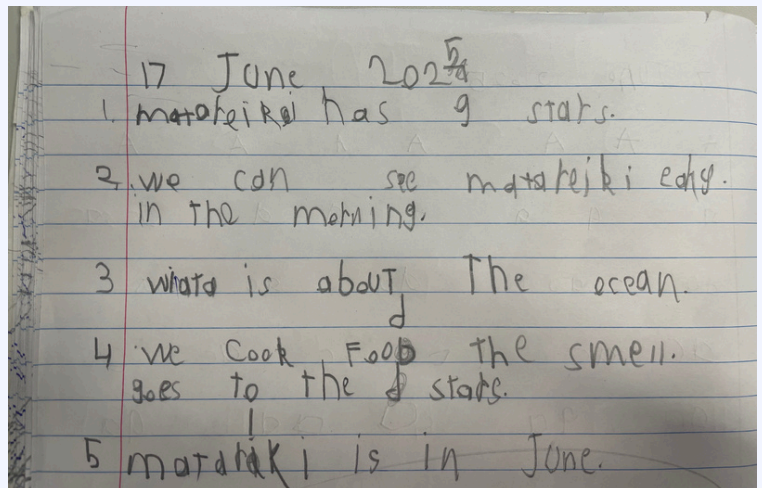 17 June 2025
1. matareiki has 9 stars.
2. we can see matareiki eahy.
in the morning.
3 wiata is about The ocean.
4 we cook Food the smell.
goes to the stars.
5 matariki is in June.